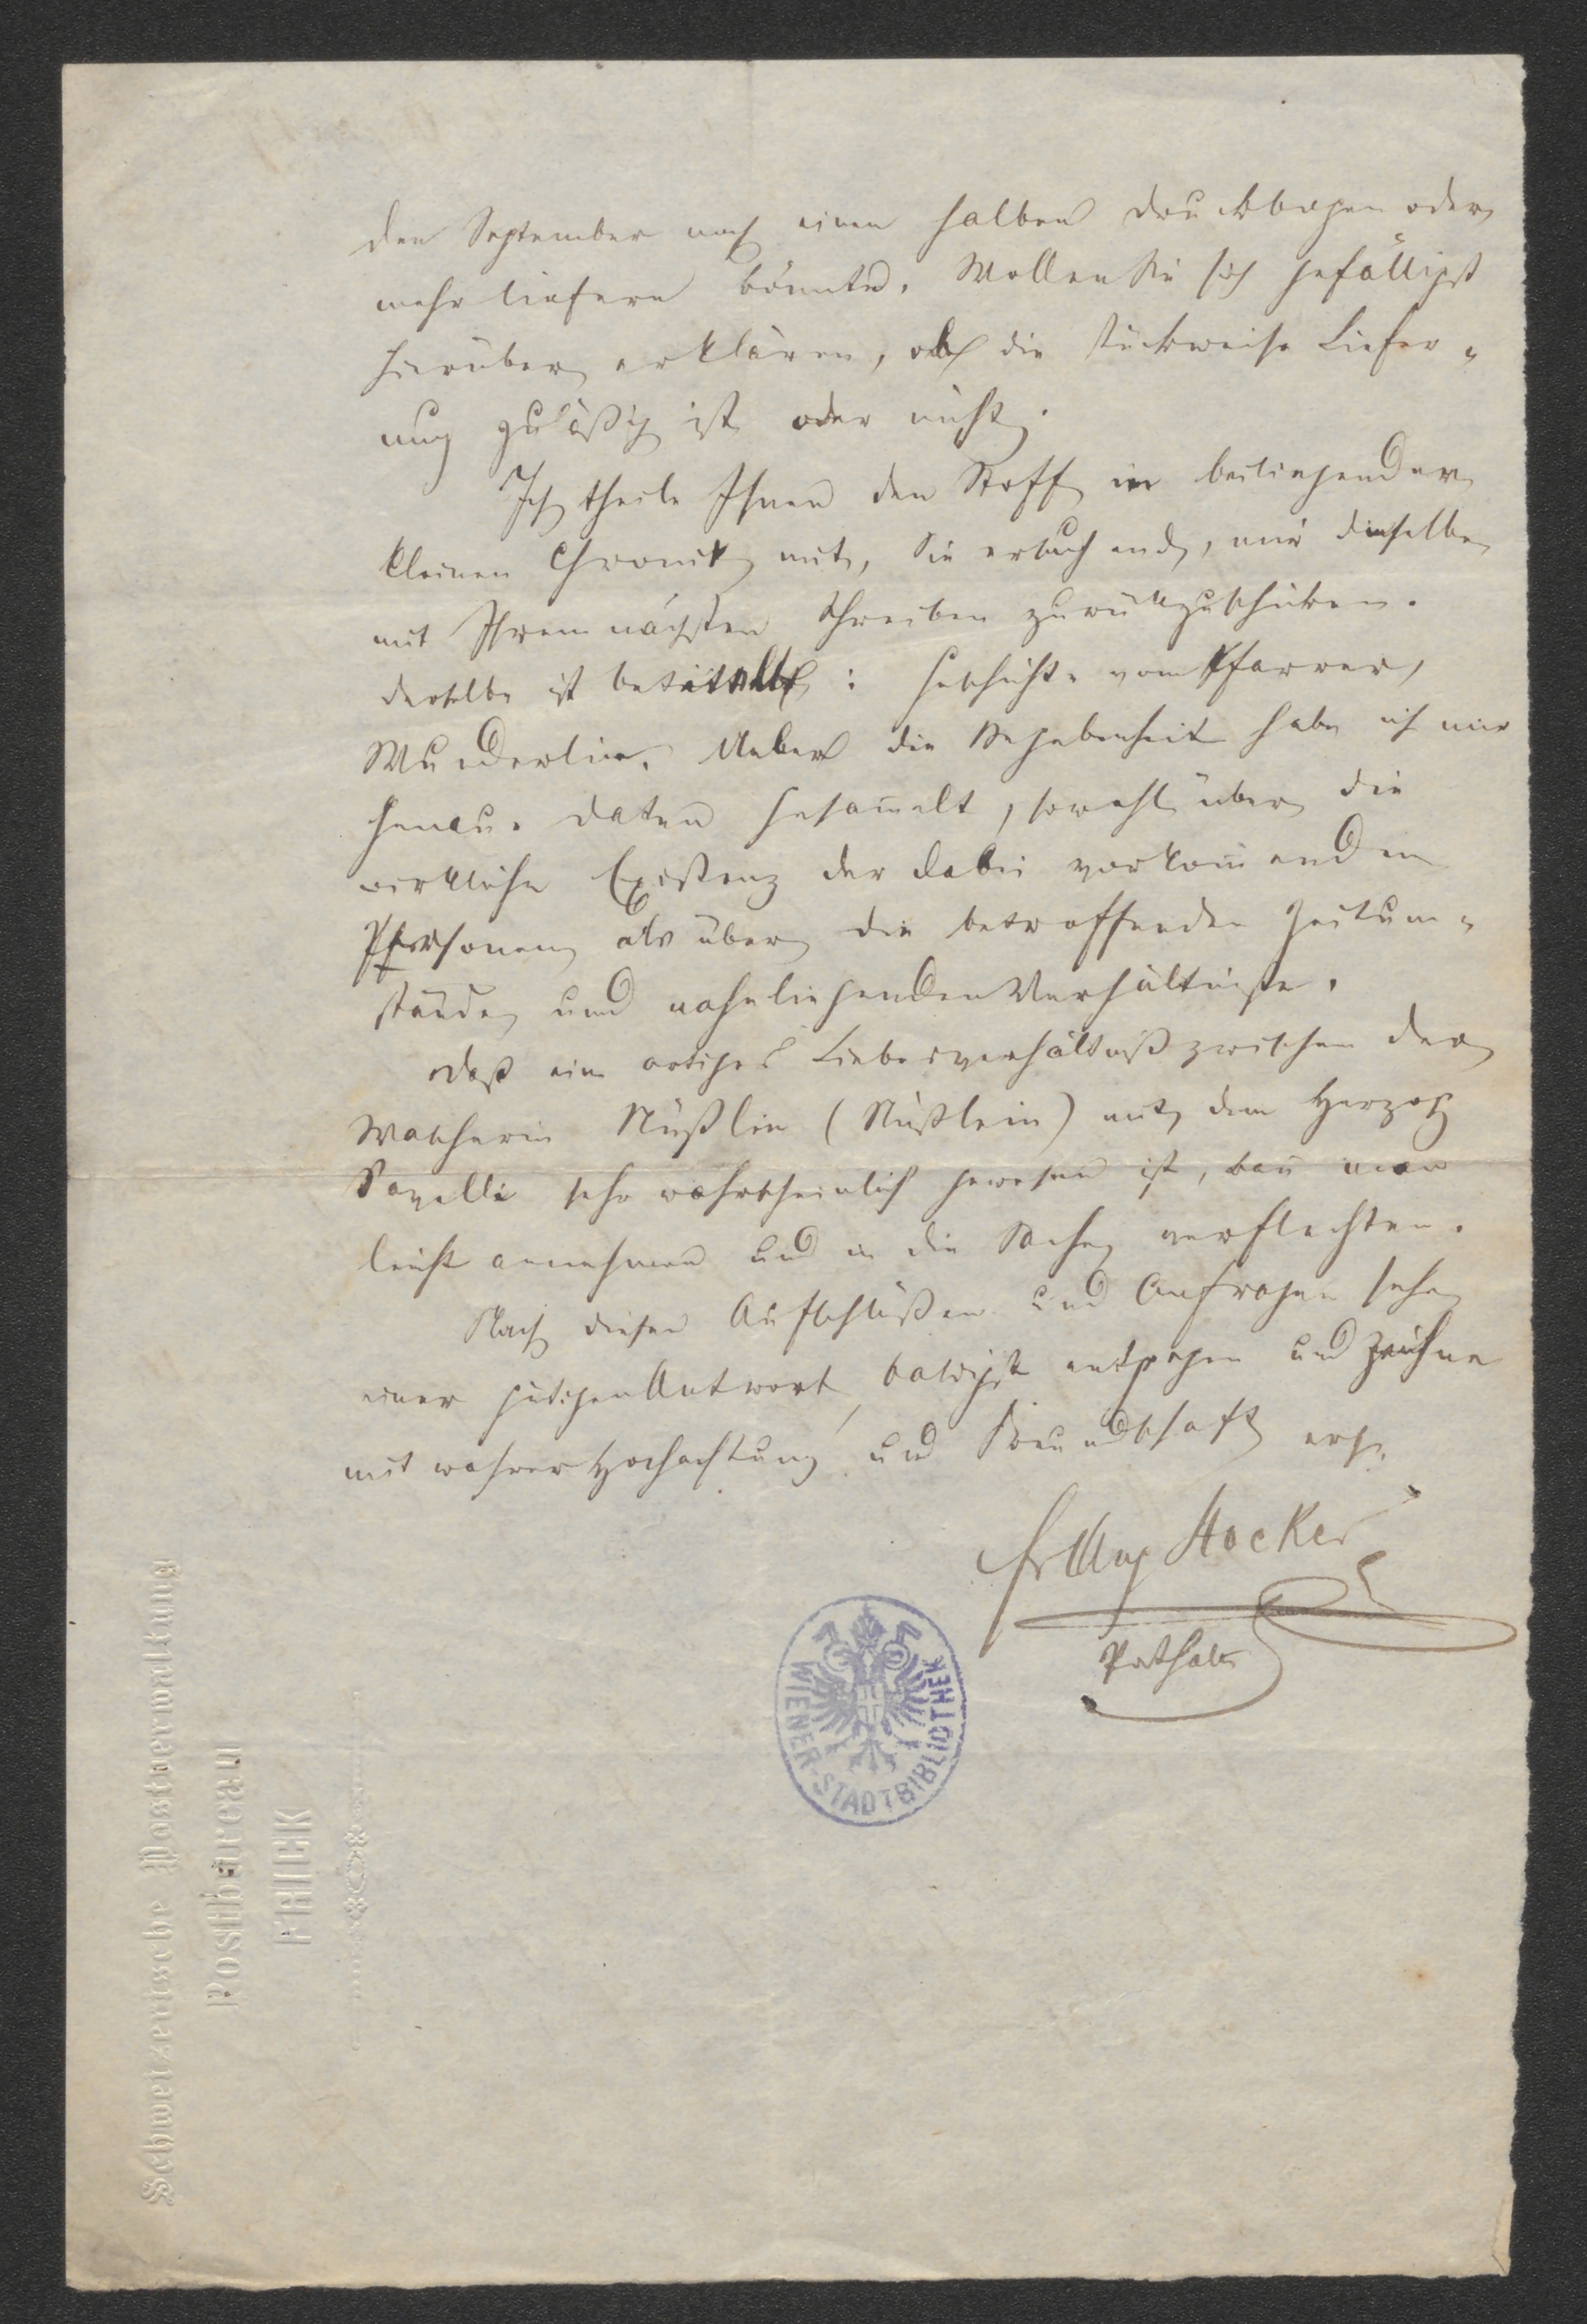 den September noch einen halben Druckbogen oder
mehr liefern könnte. Wollen Sie sich gefälligst
hierüber erklären, ob die stückweise Liefer-
ung zuläßig ist oder nicht.
Ich theile Ihnen den Stoff in beiliegender
kleinen Chronik mit, Sie ersuchend, mir dieselbe
mit Ihrem nächsten Schreiben zurückzuschicken.
Dieselbe ist betitelt: Geschichte vom Pfarrer
Wunderlin. Ueber die Begebenheit habe ich mir
genaue Daten gesam̅elt, sowohl über die
wirkliche Existenz der dabei vorkom̅enden
Personen als über die betreffenden Zeitum-
stände und naheliegenden Verhältniße.
Daß ein artiges Liebesverhältniß zwischen der
Wascherin Nüßlin (Nüßlein) mit dem Herzog
Savelli sehr wahrscheinlich gewesen ist, kan̅ man
leicht annehmen und in die Sache verflechten.
Nach diesen Aufschlüßen und Anfragen sehe
einer gütigen Antwort baldigst entgegen und zeichne
mit wahrer Hochachtung und Freundschaft erg.
Fr Aug Stocker
Posthalter
WIENER-STADTBIBLIOTHEK
Schweizerische Postverwaltung
Postbureau
FRICK